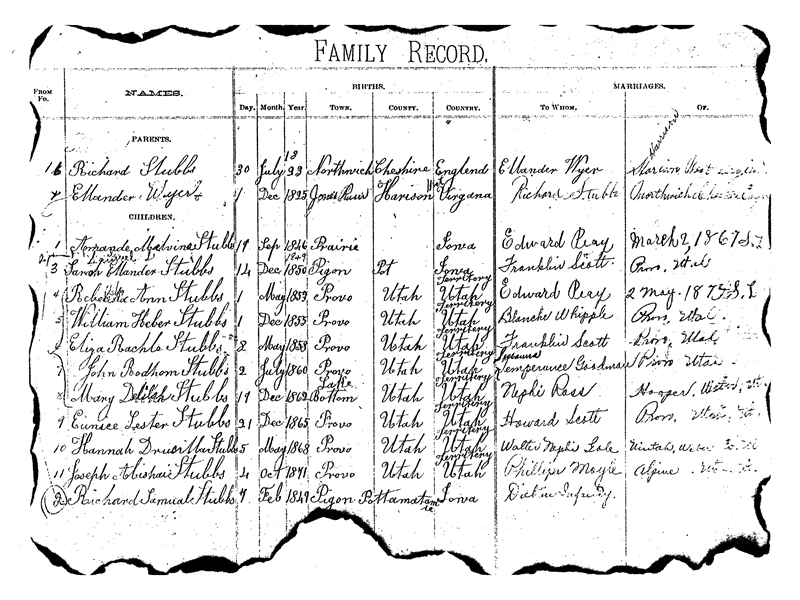 FAMILY RECORD.
FROM FO. NAMES. BIRTHS. MARRIAGES.
Day. Month. Year. TOWN. COUNTY. COUNTRY. TO WHOM. OF.
PARENTS.
Richard Stubbs 30 July Northwich Cheshire England Ellander Wyer
Ellander Wyer 1 Dec 1825 Harison Virgana Richard Stubbs Northwich
CHILDREN.
1 Amande Malvina Stubbs 19 Sep 1846 Prairie Iowa Edward Peay March 2 1867 S. L
3 Sarah Ellander Stubbs 14 Dec 1850 Pigon Pot Iowa Franklin Scott Prov. Utah
4 Rebecka Ann Stubbs 1 May 1853 Provo Utah Utah Territory Edward Peay 2 May 187 S. L
5 William Heber Stubbs 1 Dec 1855 Provo Utah Utah Territory Blanche Whipple Prov. Utah
6 Eliza Rachle Stubbs 2 May 1858 Provo Utah Utah Territory Franklin Scott Prov. Utah
7 John Rodhom Stubbs 2 July 1860 Provo Utah Utah Territory Temperance Goodman Provo Utah
8 Mary Stubbs 19 Dec 1862 Lake Bottom Utah Utah Territory Nephi Ross Hooper,
9 Eunice Lester Stubbs 21 Dec 1865 Provo Utah Utah Territory Howard Scott Prov.
10 Hannah Stubbs 5 May 1868 Provo Utah Utah Territory Walter Nephi
11 Joseph Abishai Stubbs 4 Oct 1871 Provo Utah Utah Phillipi Moyle Alpine
2 Richard Samual Stubbs 7 Feb 1849 Pigon Pottamatamie Iowa Died in Infancy.